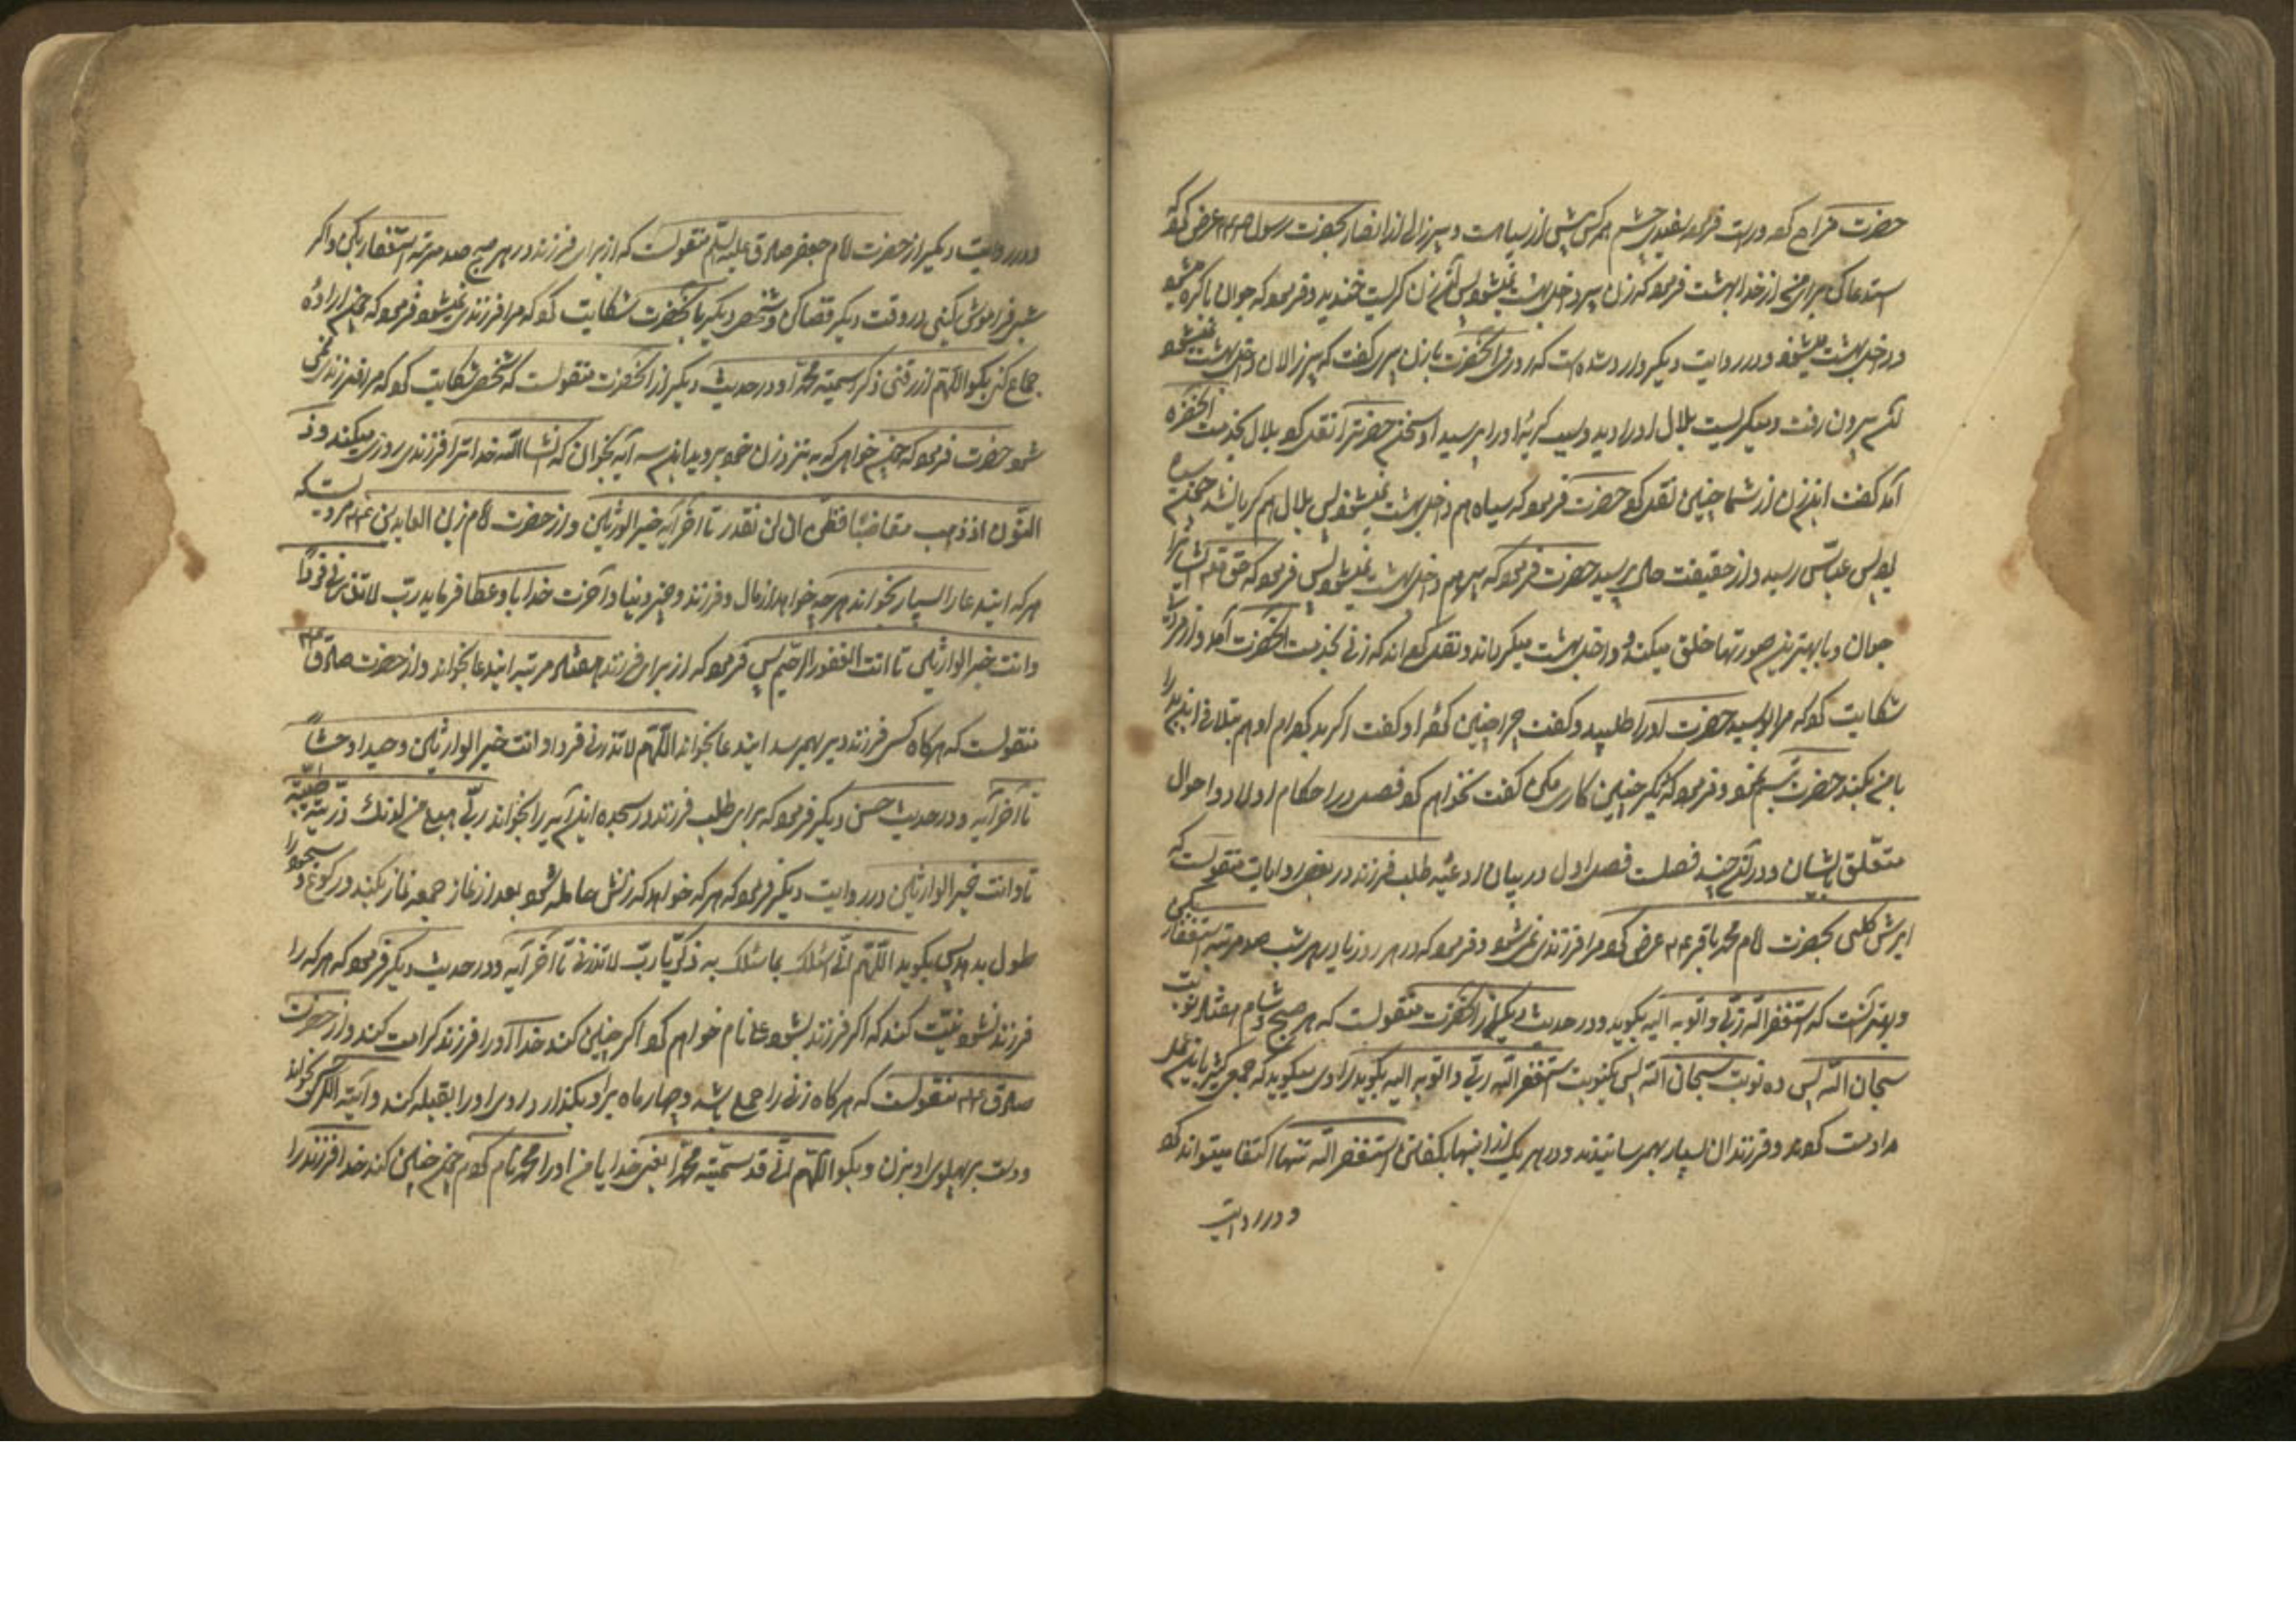 حضرت مزاح کرد درست فرمود سفیدی چشم هر کس بیش از سیاهست و پیرزالی از انصار بحضرت رسول عرض کرد که
استدعا کن برای من از خدا بهشت فرمود که زن پیر داخل بهشت نمیشود پس آن زن گریست خندید و فرمود که جوان باکره میشود
داخل بهشت میشود و در روایت دیگر وارد شده است که روزی آنحضرت با زن پیری گفت که پیرزالان داخل بهشت نمیشود
آن بیرون رفت و میگریست بلال او را دید و سبب گریه او را پرسید او سخن حضرت را نقل کرد بلال بخدمت آنحضرت
آمد گفت این زن از شما چنین نقل کرد حضرت فرمود که سیاه هم داخل بهشت نمیشود پس بلال هم گریان شد
پس عباس رسید و از حقیقت حال پرسید حضرت فرمود که پیر هم داخل بهشت نمیشود پس فرمود که حق تعالی ایشان را
جوان و با بهترین صورتها خلق میکند و داخل بهشت میگرداند و نقل کرده اند که زنی بخدمت آنحضرت آمد و از مردی
شکایت کرد که مرا بوسید حضرت او را طلبید و گفت چرا چنین کردۀ او گفت اگر بد کردم او هم تلافی این بد را
با من بکند حضرت تبسم نمود و فرمود که دیگر چنین کاری مکن گفت نخواهم کرد فصل در احکام اولاد و احوال
متعلق بایشان و در آن چند فصلست فصل اول در بیان ادعیۀ طلب فرزند در بعضی روایات منقولست که
ابرش کلبی بحضرت امام محمد باقر ع م عرض کرد مرا فرزندی نمیشود و فرمود که در هر روز یا در هر شب صد مرتبه استغفار بکن
و بهتر آنست که استغفر الله ربی و اتوب الیه بگوید و در حدیث دیگر از آنحضرت منقولست که هر صبح و شام هفتاد نوبت
سبحان الله پس ده نوبت سبحان الله پس یکنوبت استغفر الله ربی و اتوب الیه بگوید راوی میگوید که جمعی کثیر باین عمل
مداومت کردند و فرزندان بسیار بهمرسانیدند و در هر یک از اینها بگفتن استغفر الله تنها اکتفا میتواند کرد
و در روایت
و در روایت دیگر از حضرت امام جعفر صادق علیه السلم منقولست که از برای فرزند در هر صبح صد مرتبه استغفار بکن و اگر
شبی فراموش بکنی در وقت دیگر قضا کن و شخص دیگر بآنحضرت شکایت کرد که مرا فرزندی نمیشود فرمود که چون ارادۀ
جماع کنی بگو اللهم ان رزقتنی ذکرا سمیته محمدا و در حدیث دیگر از آنحضرت منقولست که شخصی شکایت کرد که مرا فرزندی نمی
شود حضرت فرمود که چون خواهی که به نزد زن خود بروی این سه آیه بخوان که انشا الله خدا ترا فرزندی روزی میکند و ذ
النون اذ ذهب مغاضبا فظن ان لن نقدر تا آخر آیه خیر الوارثین و از حضرت امام زین العابدین ع م مرویست که
هر که این دعا را بسیار بخواند هر چه خواهد از مال و فرزند و خیر دنیا و آخرت خدا باو عطا فرماید رب لا تذرنی فردا
و انت خیر الوارثین تا انت الغفور الرحیم پس فرمود که از برای فرزند هفتاد مرتبه این دعا بخواند و از حضرت صادق ع م
منقولست که هر کاه کسی فرزند دیر بهمرسد این دعا بخواند اللهم لا تذرنی فردا و انت خیر الوارثین وحیدا وحشا
تا آخر آیه و در حدیث حسن دیگر فرمود که برای طلب فرزند در سجده این آیه را بخواند رب هب لی من لدنک ذریة طیبة
تا و انت خیر الوارثین در روایت دیگر فرمود که هر که خواهد که زنش حامله شود بعد از نماز جمعه نماز بکند و رکوع و سجود را
طول بدهد پس بگوید اللهم انی اسئلک بما سئلک به زکریا رب لا تذرنی تا آخر آیه و در حدیث دیگر فرمود که هر که را
فرزند نشود نیت کند که اگر فرزند بشود علی نام خواهم کرد اگر چنین کند خدا او را فرزند کرامت کند و از حضرت
صادق ع م منقولست که هر کاه زنی را حمل باشد و چهار ماه بر او بگذارد روی او را بقبله کند و آیة الکرسی بخواند
و دست بر پهلوی او بزن و بگو اللهم انی قد سمیته محمدا یعنی خدایا من او را محمد نام کردم چون چنین کند خدا فرزند را